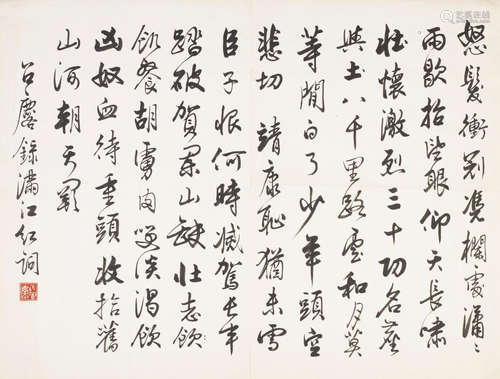 怒髮衝冠憑欄處瀟瀟
雨歇抬望眼仰天長嘯
壯懷激烈三十功名塵
與土八千里路雲和月莫
等閒白了少年頭空
悲切靖康恥猶未雪
臣子恨何時滅駕長車
踏破賀蘭山缺壯志飢
飢餐胡虜肉笑談渴飲
凶奴血待重頭收拾舊
山河朝天闕
錄滿江紅詞